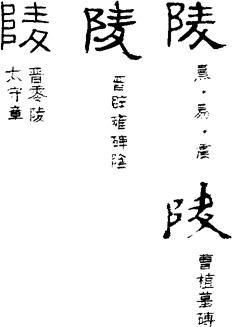 陵
熹·易·盧
陵
曹植墓磚
陵
晉辟雍碑陰
陵
晉零陵
太守章